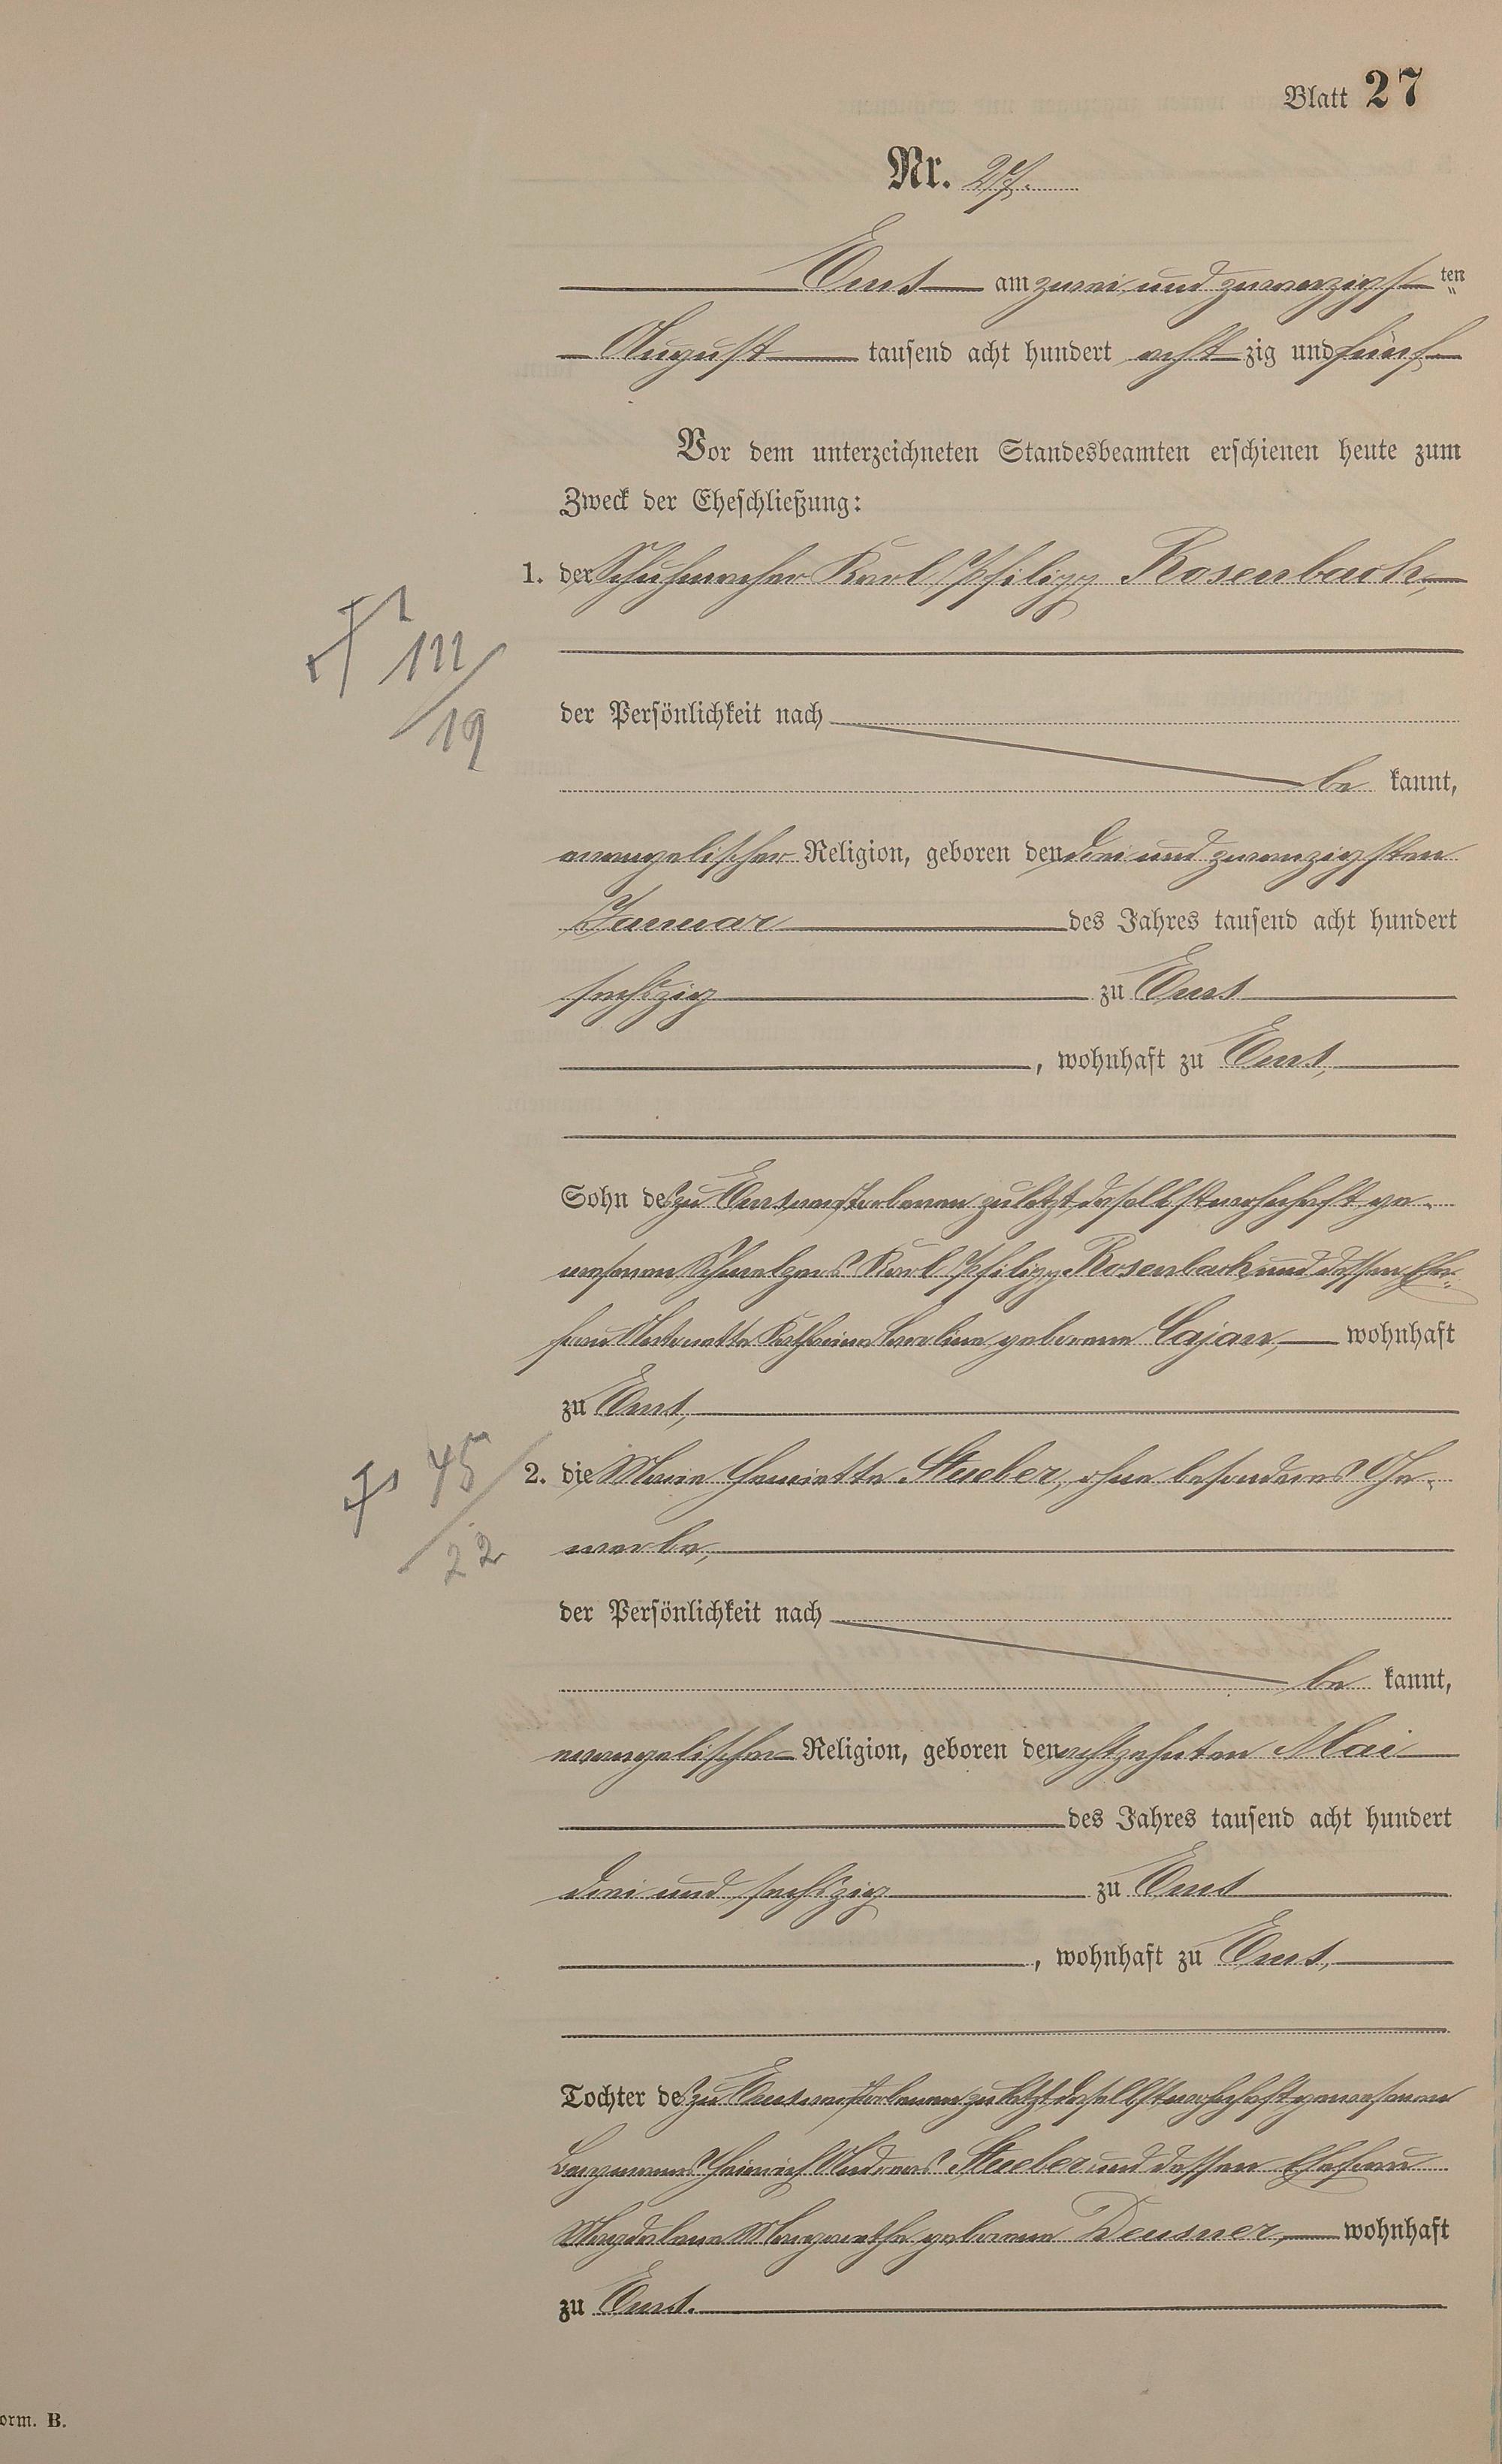 Blatt 27
Nr. 27.
Ems am zwei und zwanzigsten
August tausend acht hundert achtzig und fünf
Vor dem unterzeichneten Standesbeamten erschienen heute zum
Zweck der Eheschließung:
1. der Schuhmacher Karl Philipp Rosenbach,
† 111/19
der Persönlichkeit nach
be kannt,
evangelischer Religion, geboren den drei und zwanzigsten
Januar des Jahres tausend acht hundert
sechszig zu Ems
, wohnhaft zu Ems,
Sohn des zu Ems verstorbenen zuletzt daselbst wohnhaft ge-
wesenen Schmelzers Karl Philipp Rosenbach und dessen Ehe-
frau Antonette Katharina Caroline geborene Cajan, wohnhaft
zu Ems,
† 45/22
2. die Marie Henriette Stueber, ohne besonderes Ge-
werbe,
der Persönlichkeit nach
be kannt,
evangelischer Religion, geboren den achtzehnten Mai
des Jahres tausend acht hundert
drei und sechszig zu Ems
, wohnhaft zu Ems,
Tochter des zu Ems verstorbenen zuletzt daselbst wohnhaft gewesenen
Bergmanns Heinrich Andreas Stueber und dessen Ehefrau
Magdalene Margarethe geborene Deusner, wohnhaft
zu Ems.
orm. B.